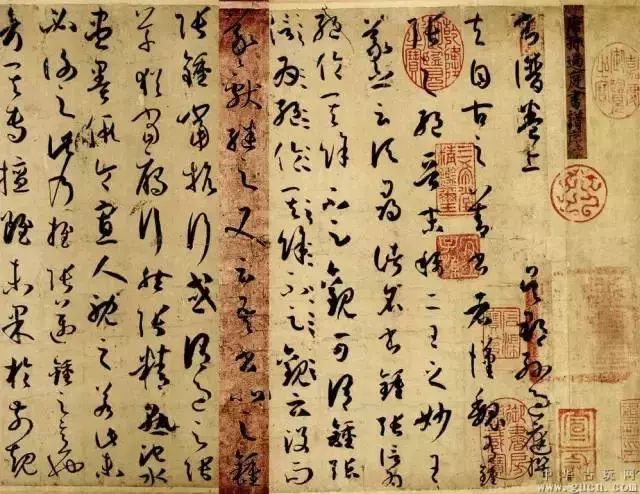 唐孫過庭書譜序
書譜卷上 吳郡孫過庭撰
夫自古之善書者漢魏有鍾
張之絕晉末稱二王之妙王
羲之云頃尋諸名書鍾張信為
絕倫其餘不足觀可謂鍾張
信為絕倫其餘不足觀云沒而
羲獻繼之又云吾書比之鍾
張鍾當抗行或謂過之張
草猶當鴈行然張精熟池水
盡墨假令寡人耽之若此未
必謝之此乃推張邁鍾之意也
考其專擅雖未果於前規
中华古玩网
www.gucn.com